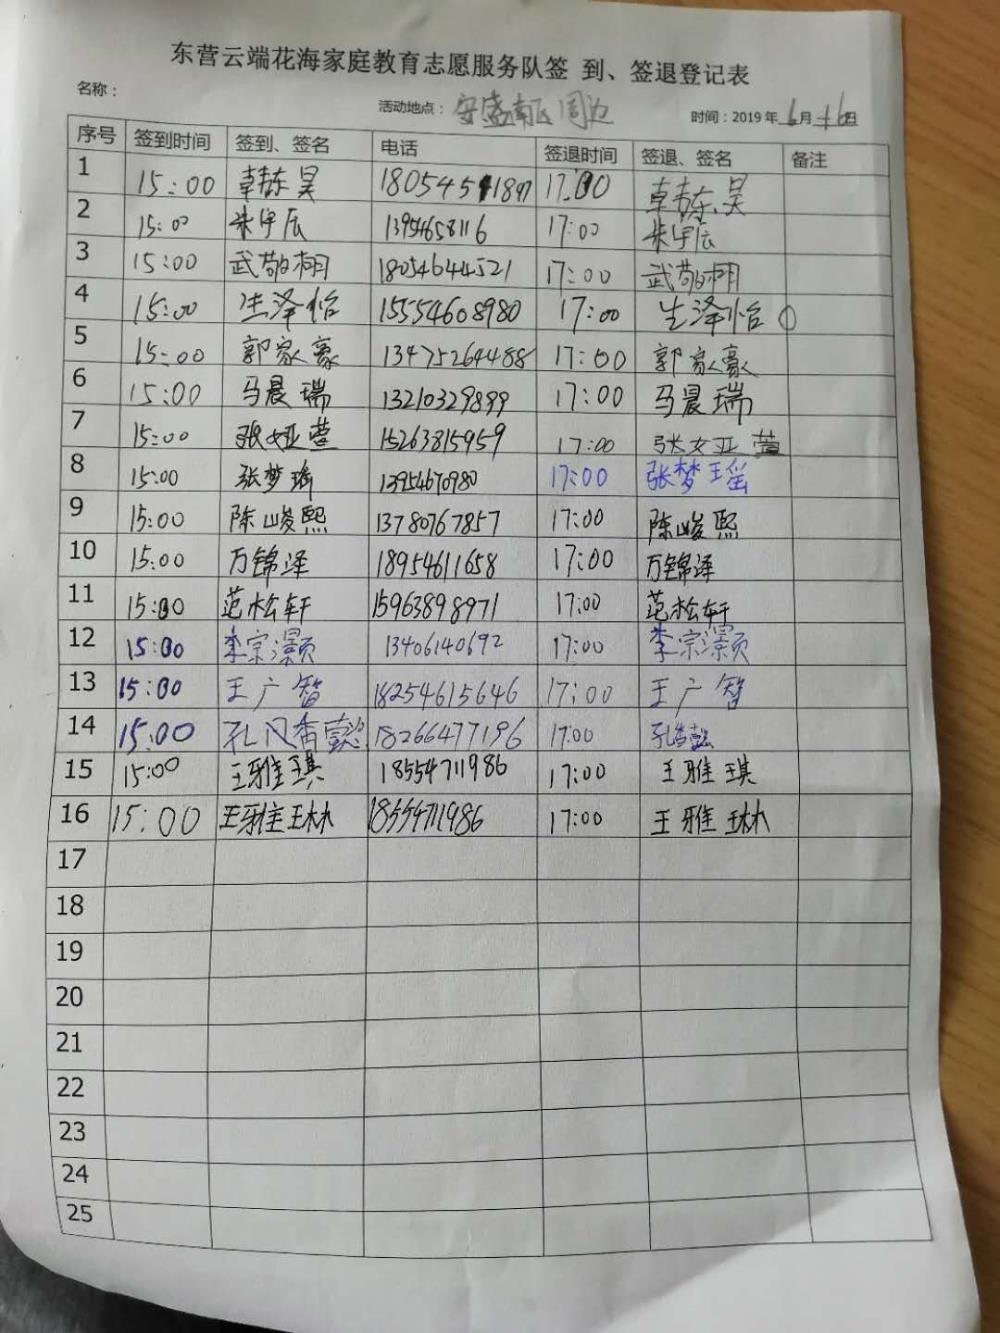 东营云端花海家庭教育志愿服务队签 到、签退登记表
名称：
活动地点： 安盛南区周边 时间：2019年6月16日
序号 签到时间 签到、签名 电话 签退时间 签退、签名 备注
1 15:00 韩东昊 17:00 韩东昊
2 15:00 朱宇辰 13954658116 17:00 朱宇辰
3 15:00 武敬栩 18054644521 17:00 武敬栩
4 15:00 生泽怡 15554608980 17:00 生泽怡
5 15:00 郭家豪 13475264488 17:00 郭家豪
6 15:00 马晨瑞 13210329899 17:00 马晨瑞
7 15:00 张娅萱 15263815959 17:00 张娅萱
8 15:00 张梦瑶 13954670980 17:00 张梦瑶
9 15:00 陈峻熙 13780767857 17:00 陈峻熙
10 15:00 万锦泽 18954611658 17:00 万锦泽
11 15:00 范松轩 15963898971 17:00 范松轩
12 15:00 李宗灏 13406140692 17:00 李宗灏
13 15:00 王广智 18254615646 17:00 王广智
14 15:00 孔 18266477196 17:00 孔
15 15:00 王雅琪 18554711986 17:00 王雅琪
16 15:00 王雅琳 18554711986 17:00 王雅琳
17
18
19
20
21
22
23
24
25